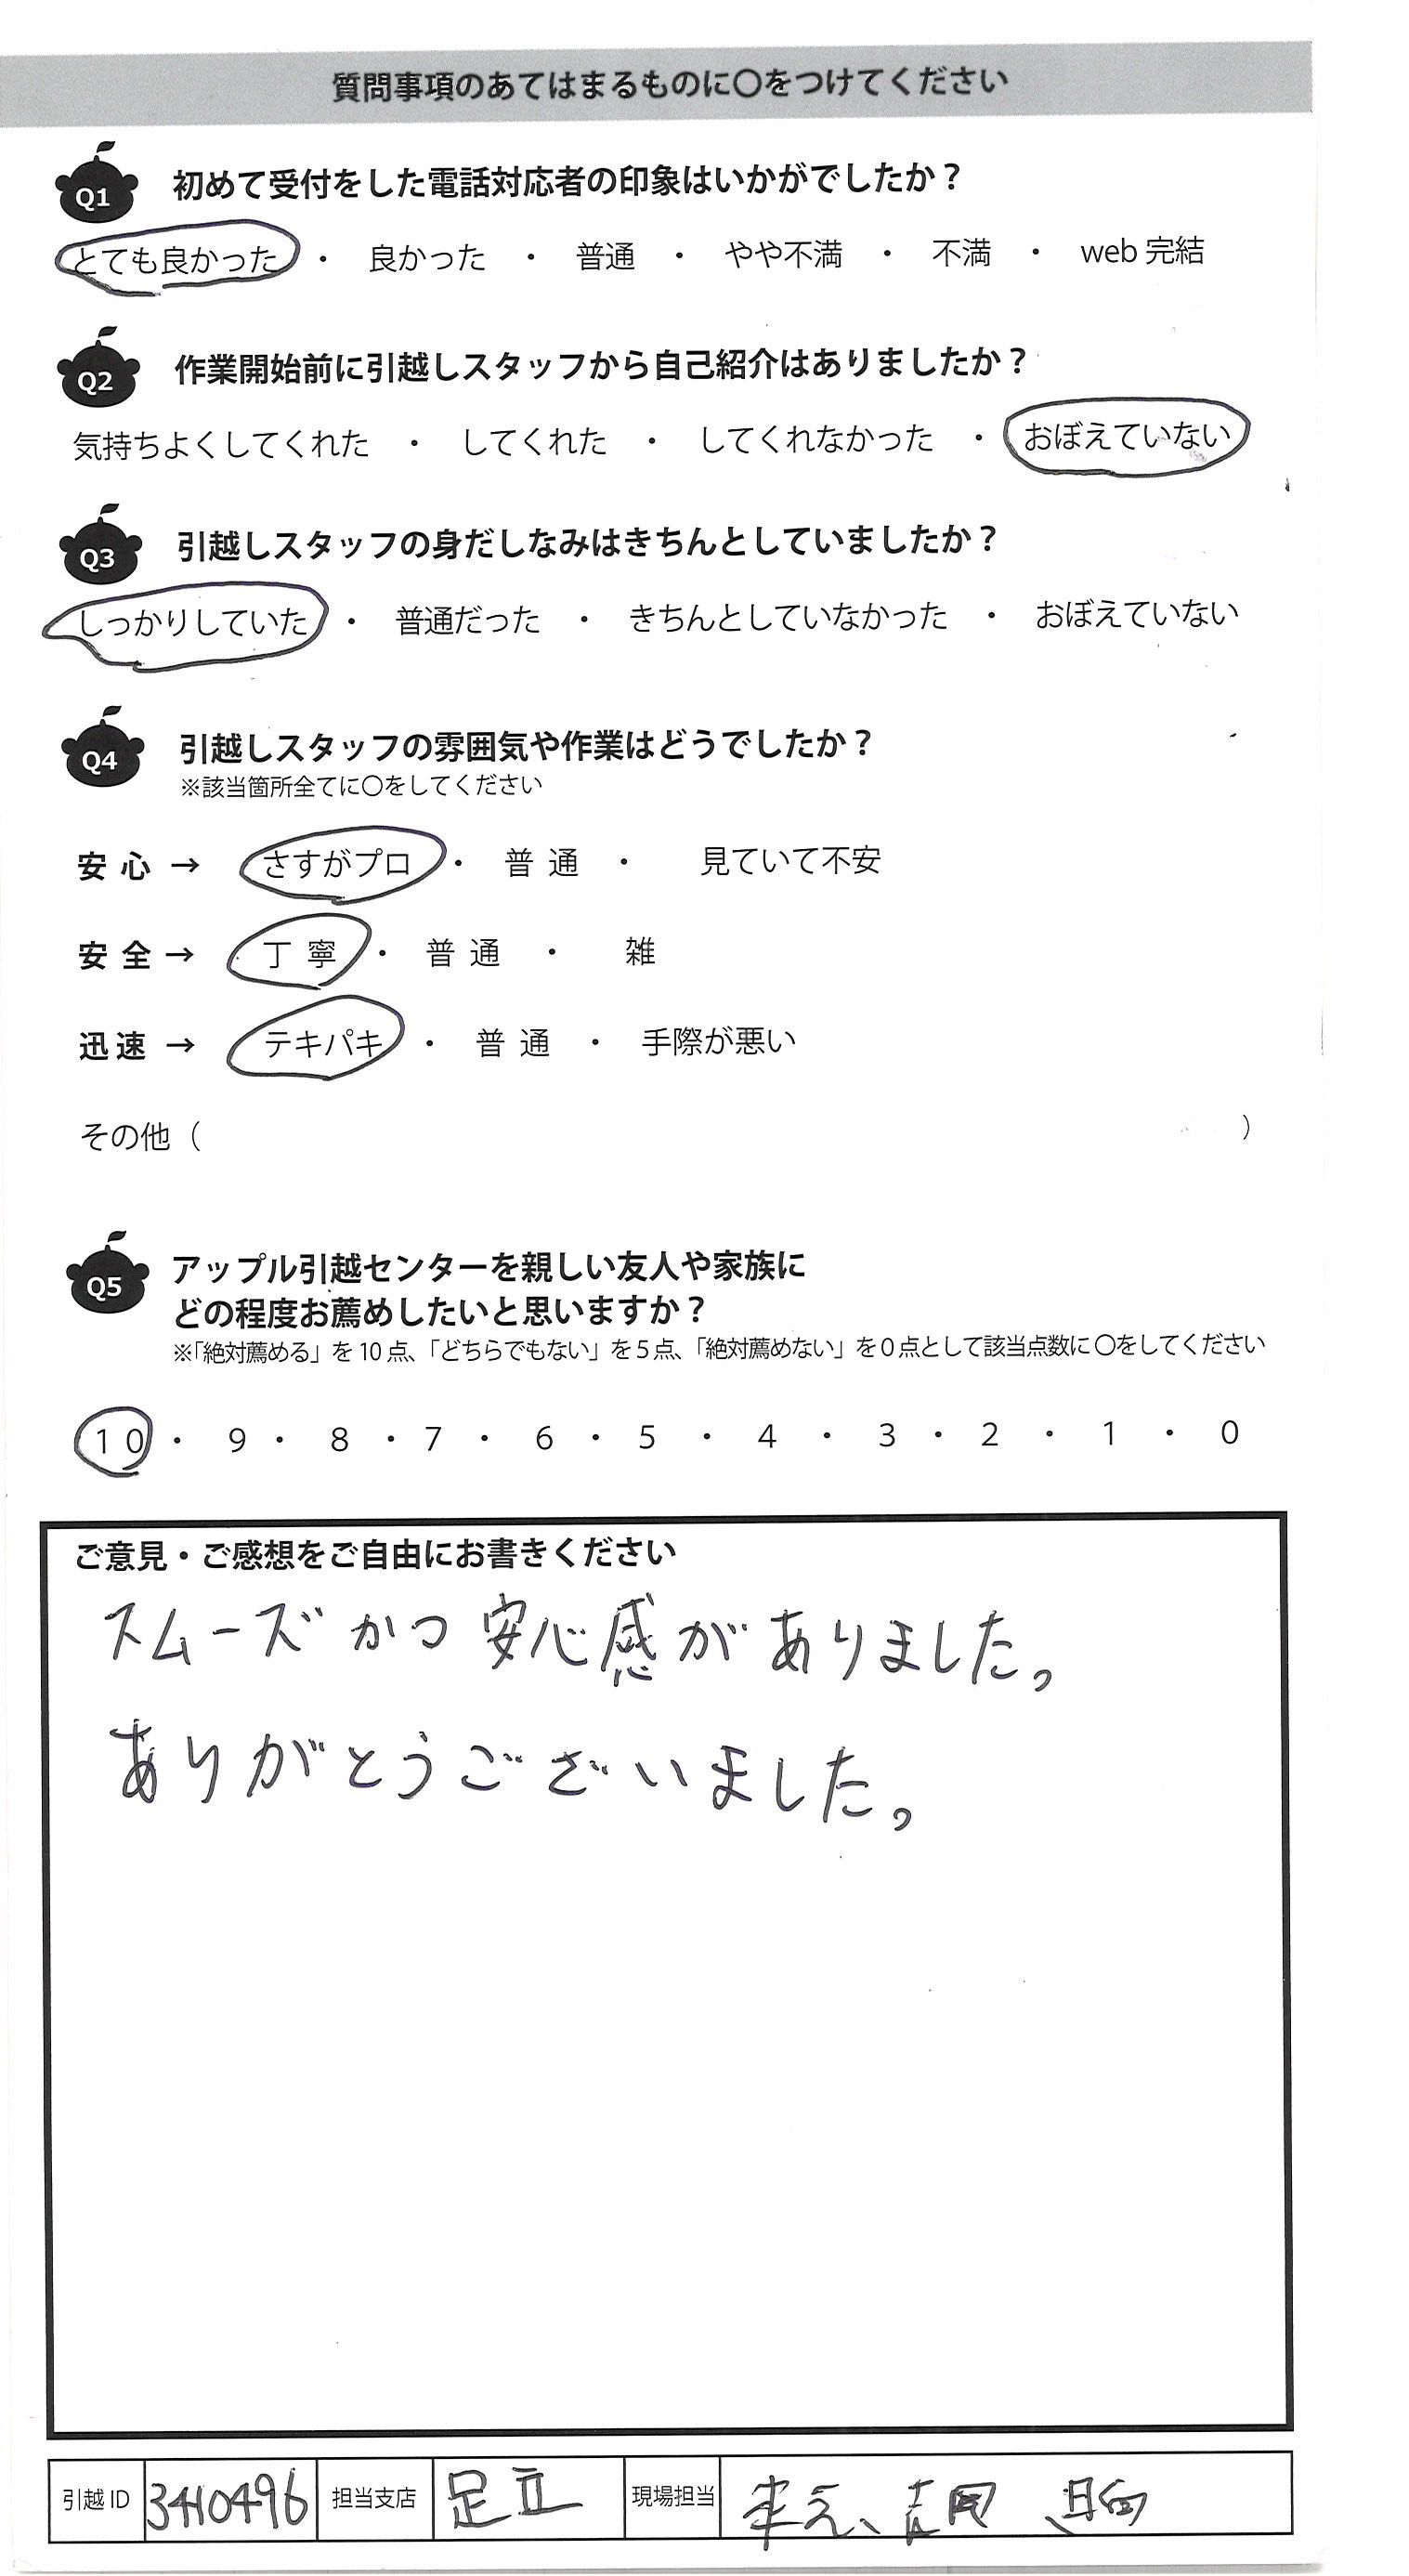 質問事項のあてはまるものに〇をつけてください
Q1 初めて受付をした電話対応者の印象はいかがでしたか？
とても良かった ・ 良かった ・ 普通 ・ やや不満 ・ 不満 ・ web 完結
Q2 作業開始前に引越しスタッフから自己紹介はありましたか？
気持ちよくしてくれた ・ してくれた ・ してくれなかった ・ おぼえていない
Q3 引越しスタッフの身だしなみはきちんとしていましたか？
しっかりしていた ・ 普通だった ・ きちんとしていなかった ・ おぼえていない
Q4 引越しスタッフの雰囲気や作業はどうでしたか？
※該当箇所全てに〇をしてください
安心 → さすがプロ ・ 普通 ・ 見ていて不安
安全 → 丁寧 ・ 普通 ・ 雑
迅速 → テキパキ ・ 普通 ・ 手際が悪い
その他（ ）
Q5 アップル引越センターを親しい友人や家族に
どの程度お薦めしたいと思いますか？
※「絶対薦める」を10点、「どちらでもない」を5点、「絶対薦めない」を0点として該当点数に〇をしてください
10 ・ 9 ・ 8 ・ 7 ・ 6 ・ 5 ・ 4 ・ 3 ・ 2 ・ 1 ・ 0
ご意見・ご感想をご自由にお書きください
スムーズかつ安心感がありました。
ありがとうございました。
引越ID 3410496 担当支店 足立 現場担当